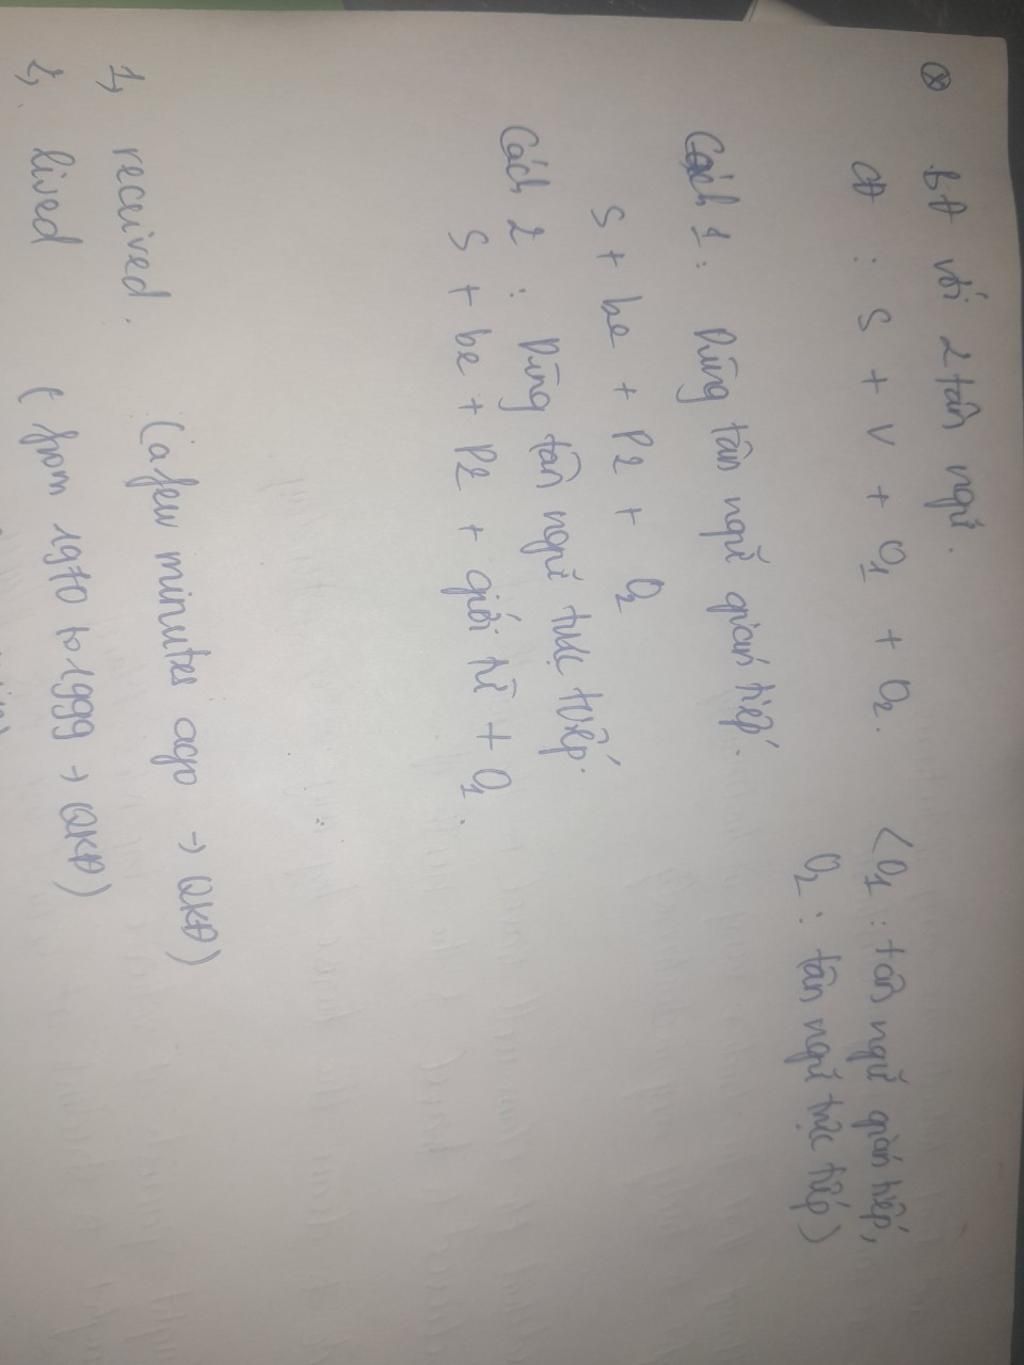 ⊗ BĐ với 2 tân ngữ.
CĐ : S + V + O1 + O2. (O1 : tân ngữ gián tiếp,
O2 : tân ngữ trực tiếp)
Cách 1 : Dùng tân ngữ gián tiếp.
S + be + P2 + O2
Cách 2 : Dùng tân ngữ trực tiếp.
S + be + P2 + giới từ + O1.
1, received. (a few minutes ago → QKĐ)
2, lived (from 1970 to 1999 → QKĐ)